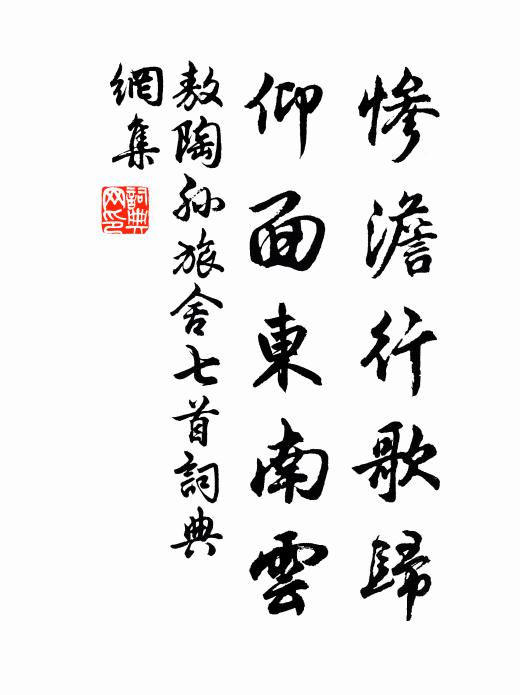 慘澹行歌歸
仰面東南雲
敖陶孙旅舍七首詞典
網集
詞典网印